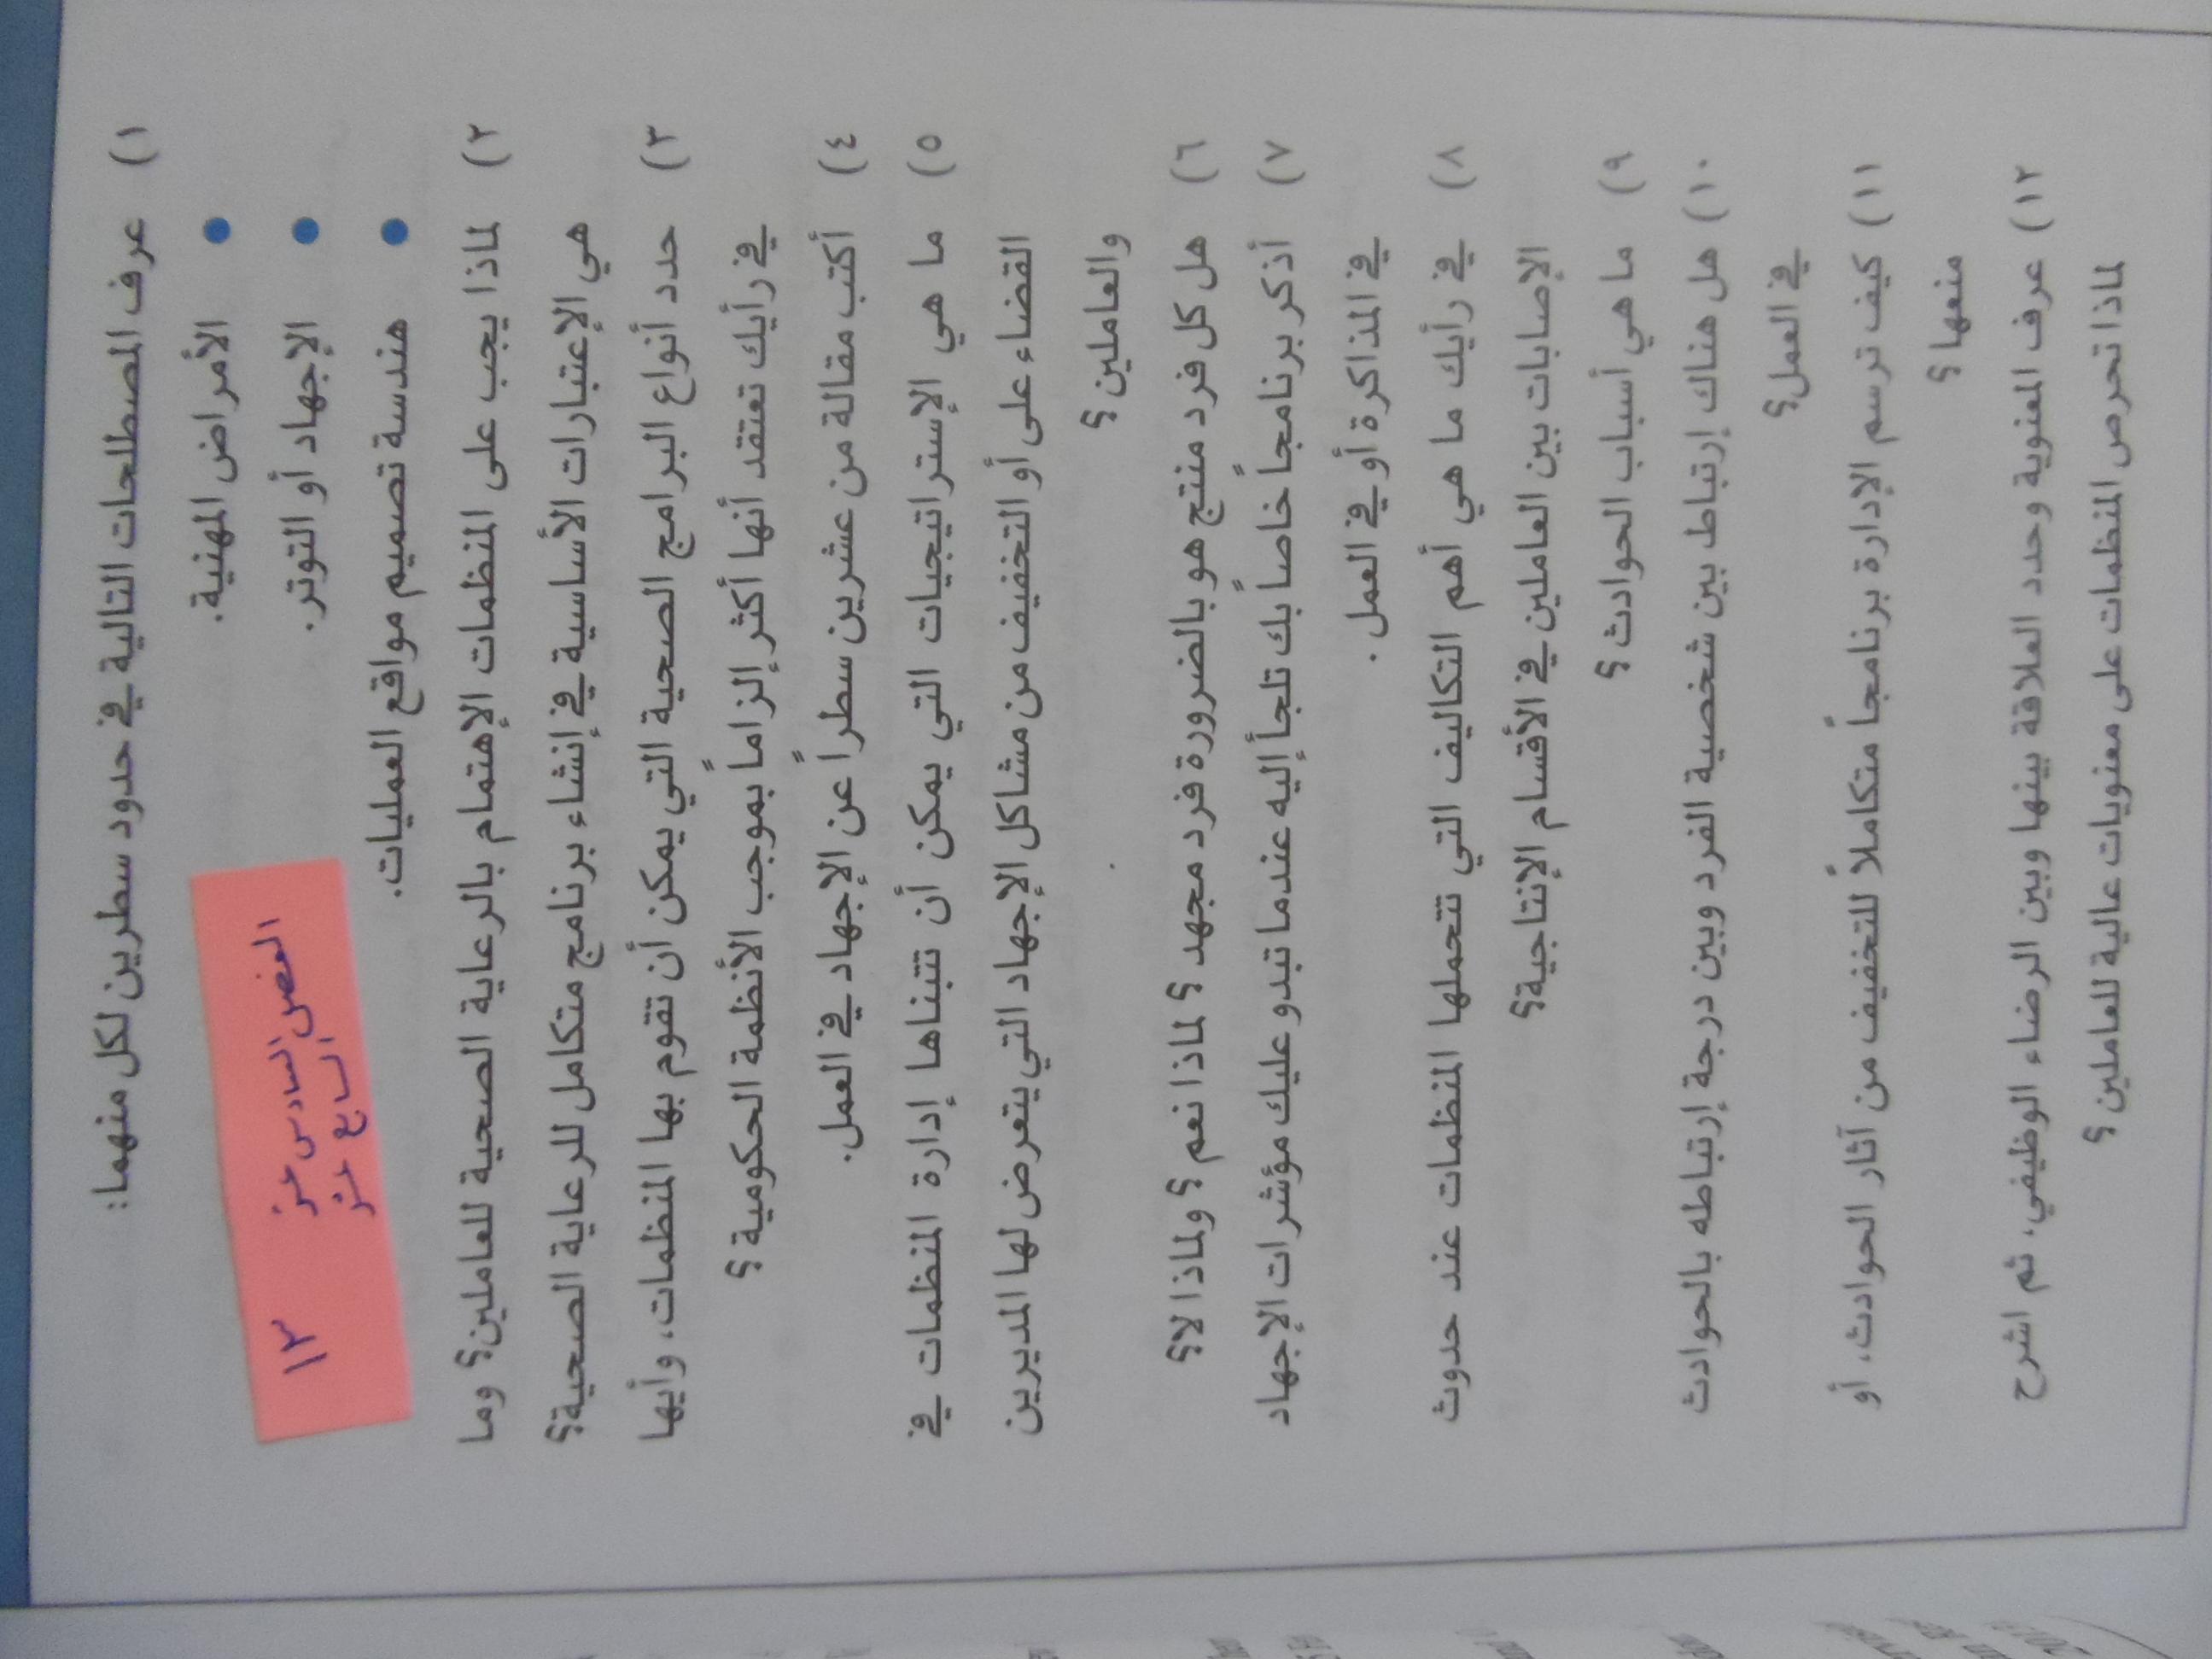 ١) عرف المصطلحات التالية في حدود سطرين لكل منهما:
● الأمراض المهنية.
● الإجهاد أو التوتر.
● هندسة تصميم مواقع العمليات.
١٣ الفصل السادس عشر
السابع عشر
٢) لماذا يجب على المنظمات الإهتمام بالرعاية الصحية للعاملين؟ وما
هي الإعتبارات الأساسية في إنشاء برنامج متكامل للرعاية الصحية؟
٣) حدد أنواع البرامج الصحية التي يمكن أن تقوم بها المنظمات، وأيها
في رأيك تعتقد أنها أكثر إلزاماً بموجب الأنظمة الحكومية؟
٤) أكتب مقالة من عشرين سطراً عن الإجهاد في العمل.
٥) ما هي الإستراتيجيات التي يمكن أن تتبناها إدارة المنظمات في
القضاء على أو التخفيف من مشاكل الإجهاد التي يتعرض لها المديرين
والعاملين؟
٦) هل كل فرد منتج هو بالضرورة فرد مجهد؟ لماذا نعم؟ ولماذا لا؟
٧) أذكر برنامجاً خاصاً بك تلجأ إليه عندما تبدو عليك مؤشرات الإجهاد
في المذاكرة أو في العمل.
٨) في رأيك ما هي أهم التكاليف التي تتحملها المنظمات عند حدوث
الإصابات بين العاملين في الأقسام الإنتاجية؟
٩) ما هي أسباب الحوادث؟
١٠) هل هناك إرتباط بين شخصية الفرد وبين درجة إرتباطه بالحوادث
في العمل؟
١١) كيف ترسم الإدارة برنامجاً متكاملاً للتخفيف من آثار الحوادث، أو
منعها؟
١٢) عرف المعنوية وحدد العلاقة بينها وبين الرضاء الوظيفي، ثم اشرح
لماذا تحرص المنظمات على معنويات عالية للعاملين؟